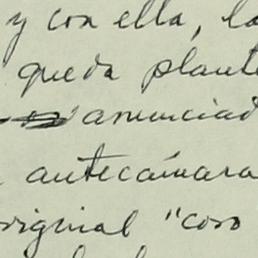 y con ella, la
queda plante
anunciad
antecámara
original "coro